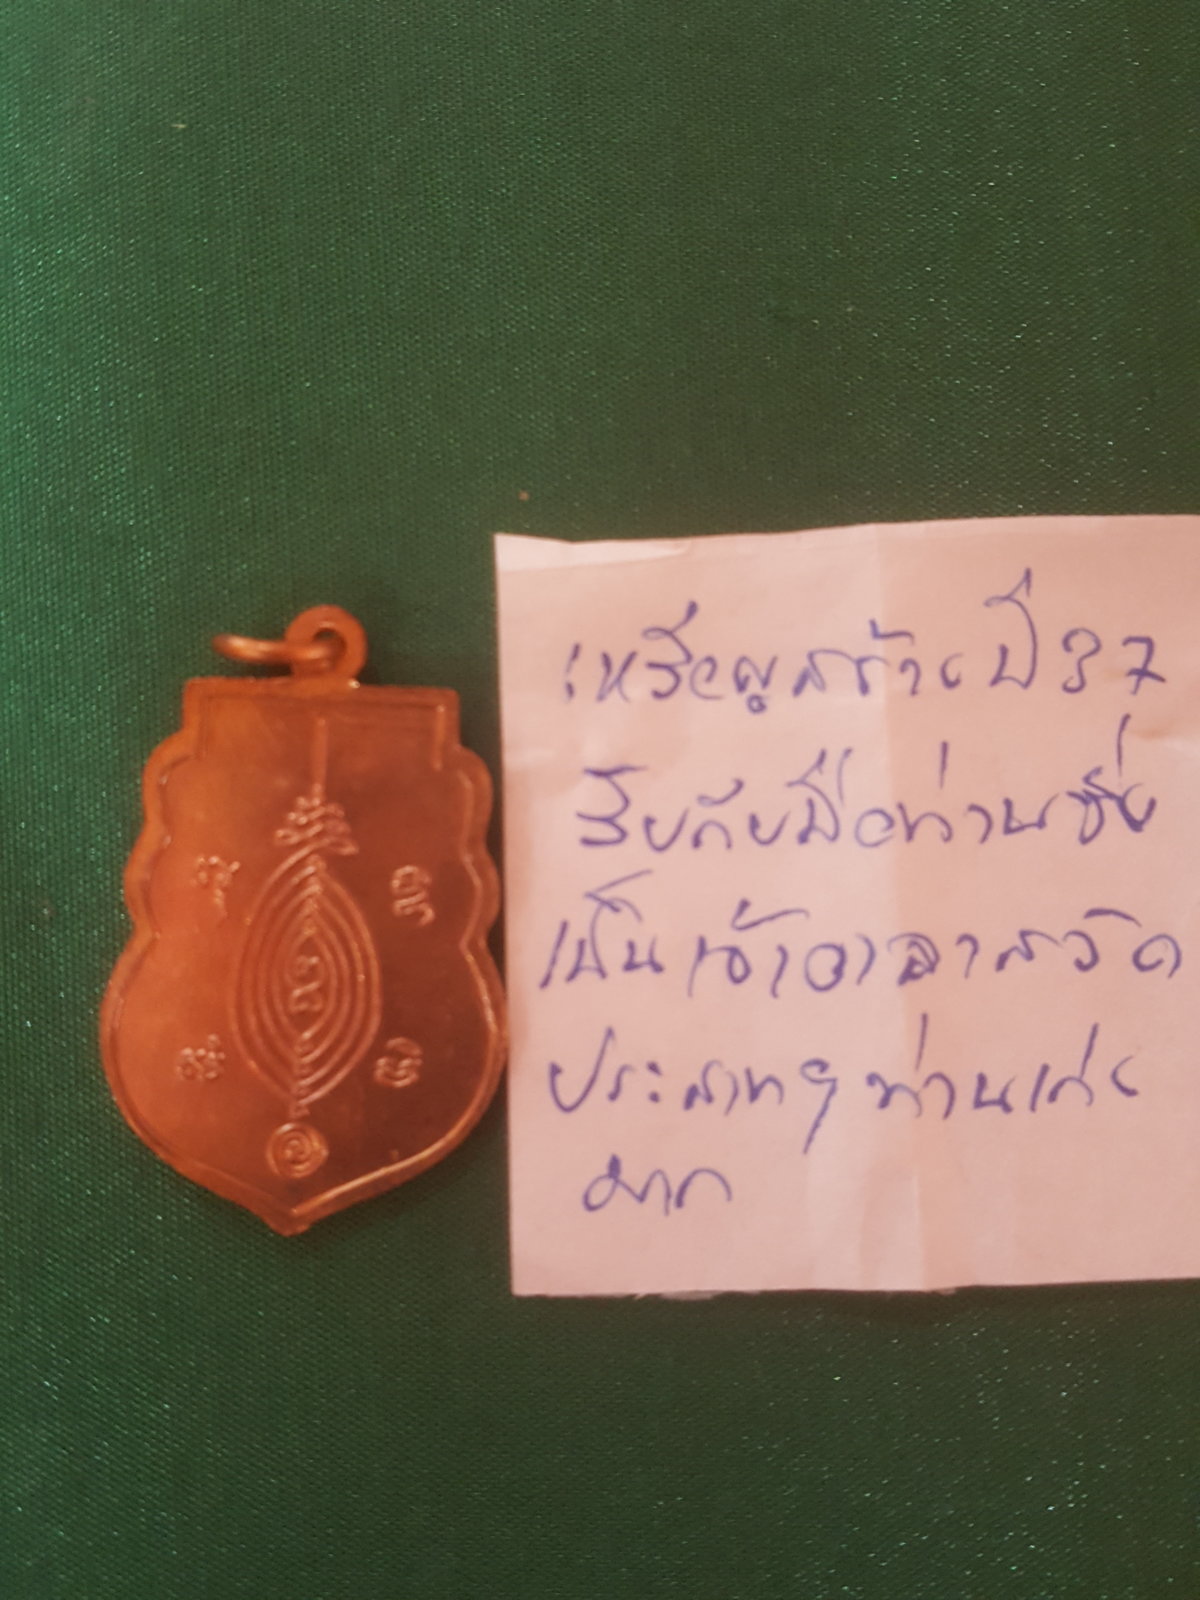 เหรียญสร้างปี 37
รับกับมือท่านซึ่ง
เป็นเจ้าอาวาสวัด
ประสาทฯ ท่านเก่ง
มาก